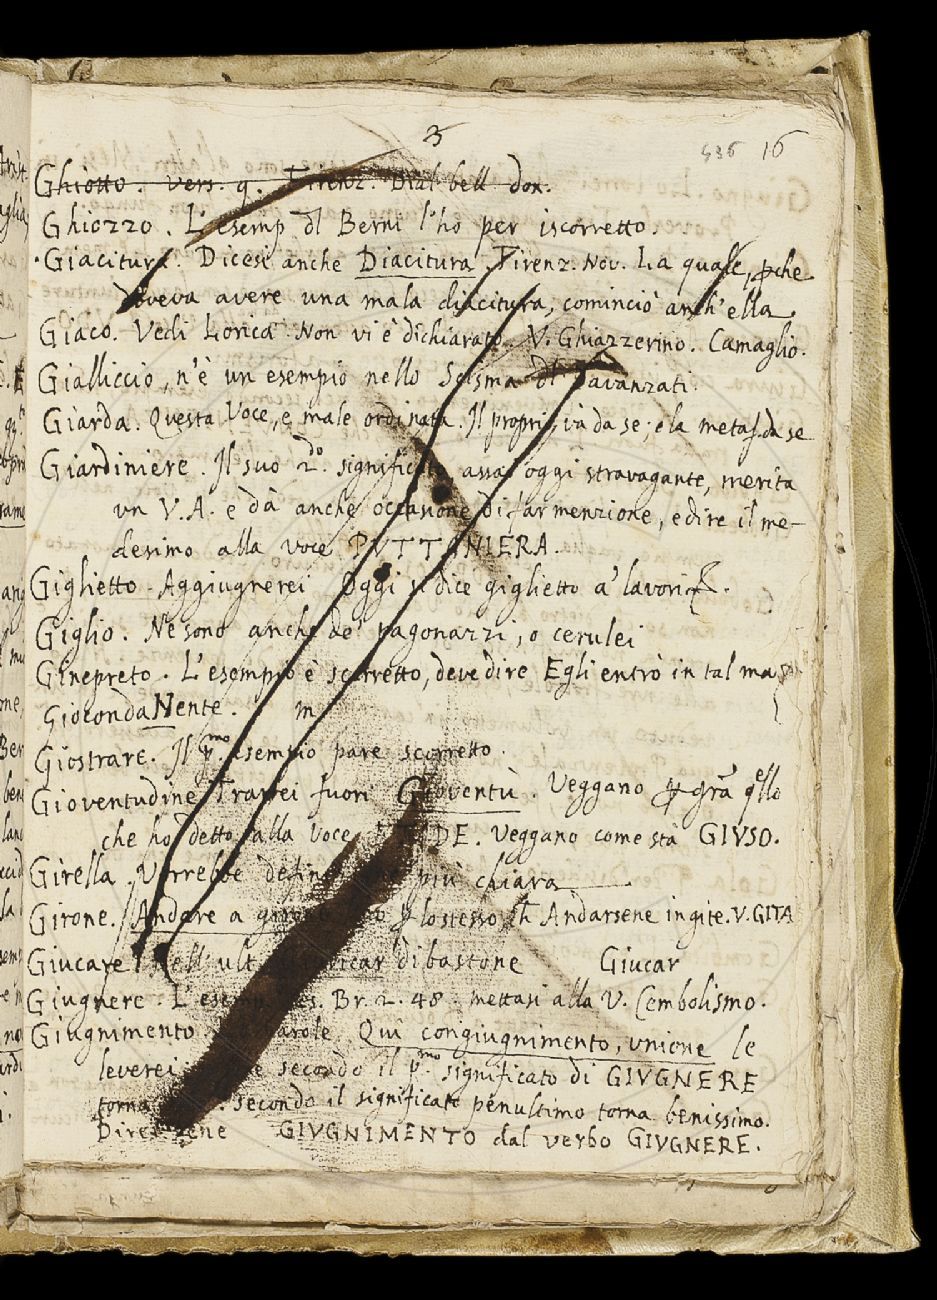 3
436 16
Ghiotto. vers. q. Firenz. Dial. bell don.
Ghiozzo. L'esemp dl Berni l'ho per iscorretto.
Giacitura. Dicesi anche Diacitura. Firenz. Nov. La quale, pche
doveva avere una mala diacitura, cominciò anch'ella.
Giaco. Vedi Lorica. Non vi è dichiarato. V. Ghiazzerino. Camaglio.
Gialliccio, n'è un esempio nello Scisma dl Davanzati.
Giarda. Questa Voce, e male ordinata. Il propri, và da se; e la metaf. da se
Giardiniere. Il suo 2º. significato assai oggi stravagante, merita
un V.A. e dà anche occasione di far menzione, e dire il me-
desimo alla voce PVTTANIERA.
Giglietto. Aggiugnerei Oggi si dice giglietto a' lavori
Giglio. Ne sono anche de' pagonazzi, o cerulei
Ginepreto. L'esempio è scorretto, deve dire Egli entrò in tal ma
GiocondaNente. m
Giostrare. Il pmo. esempio pare scorretto.
Gioventudine Trarrei fuori Gioventù. Veggano p grã qllo
che ho detto alla voce DE. Veggano come sta GIVSO.
Girella Vorrebbe più chiara
Girone. Andare a girone p lo stesso ch Andarsene in gite. V. GITA
Giucare. Nell'ult. Giuicar di bastone Giucar
Giugnere. L'esemp. Tes. Br. 2. 48. mettasi alla V. Cembolismo.
Giugnimento. parole Qui congiugnimento, unione le
leverei e secondo il pmo. significato di GIVGNERE
torna secondo il significato penultimo torna benissimo.
Dire GIVGNIMENTO dal verbo GIVGNERE.